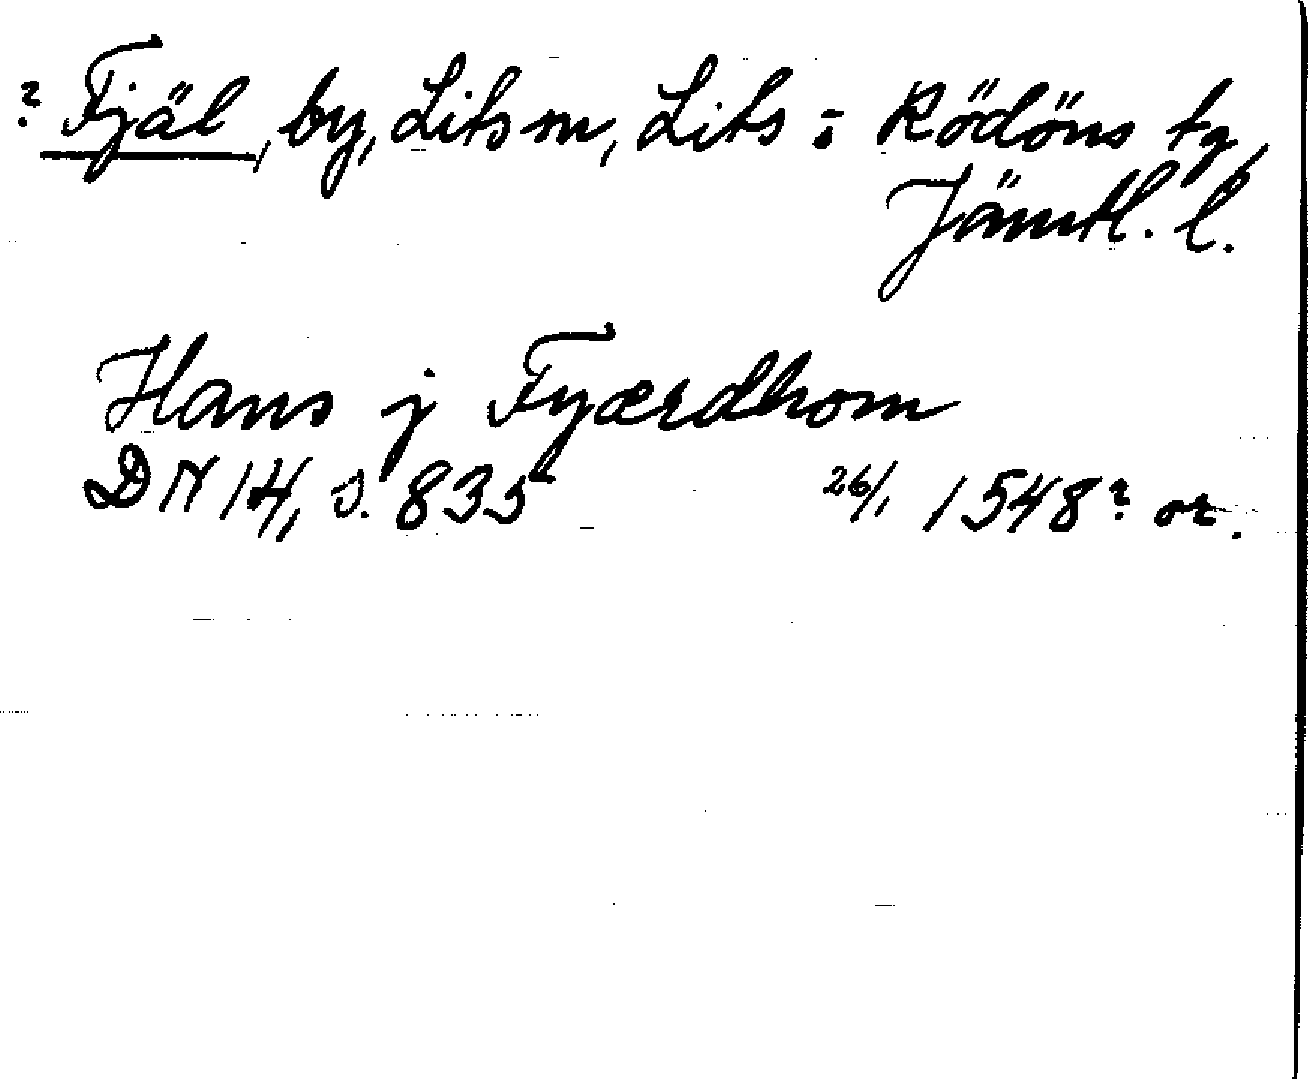 ? Fjäl, by, Lits sn, Lits o Rödöns tg,
Jämtl. l.
Hans j Fyærdhom
DN 14, s. 835 26/1 1548? or.